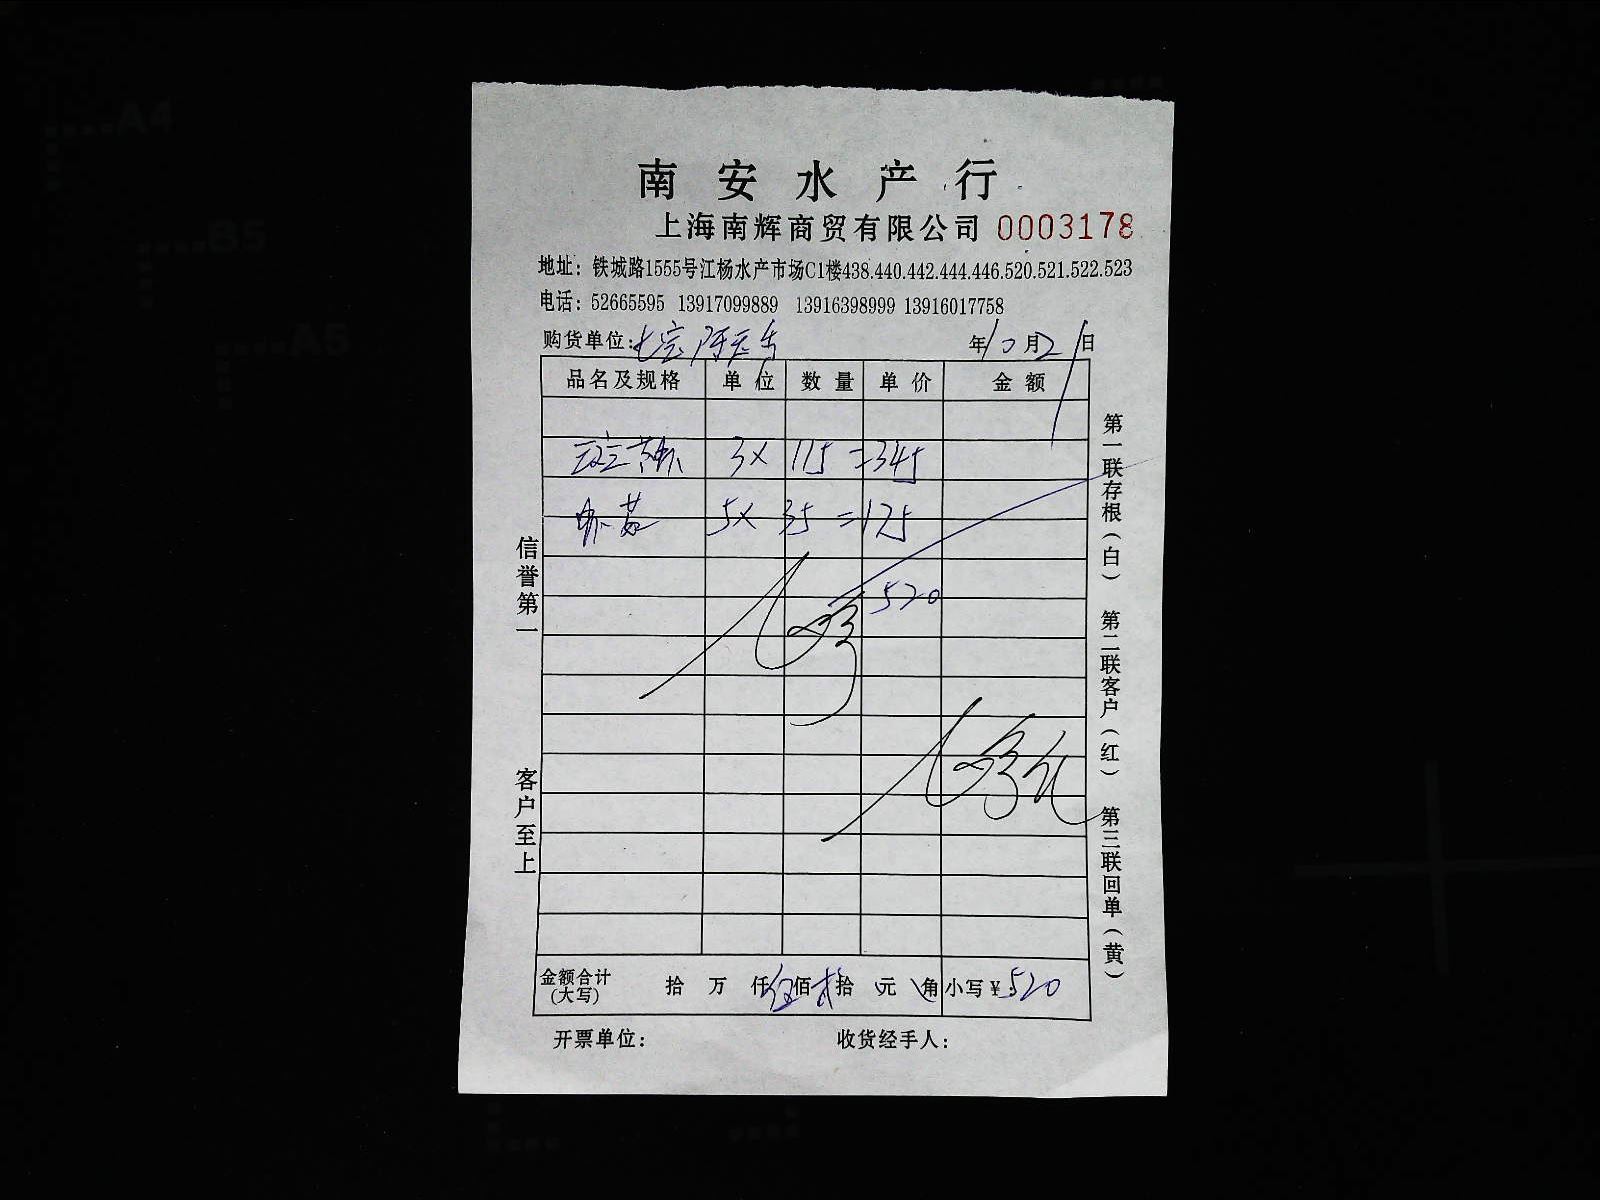 南安水产行
上海南辉商贸有限公司 0003178
地址：铁城路1555号江杨水产市场C1楼438.440.442.444.446.520.521.522.523
电话：52665595 13917099889 13916398999 13916017758
购货单位：七宝 年10月21日
品名及规格 单位 数量 单价 金额
3× 115=345
5× 35=175
520
金额合计(大写) 拾 万 仟伍佰贰拾 元 角 小写¥：520
开票单位： 收货经手人：
信誉第一
客户至上
第一联存根（白） 第二联客户（红） 第三联回单（黄）